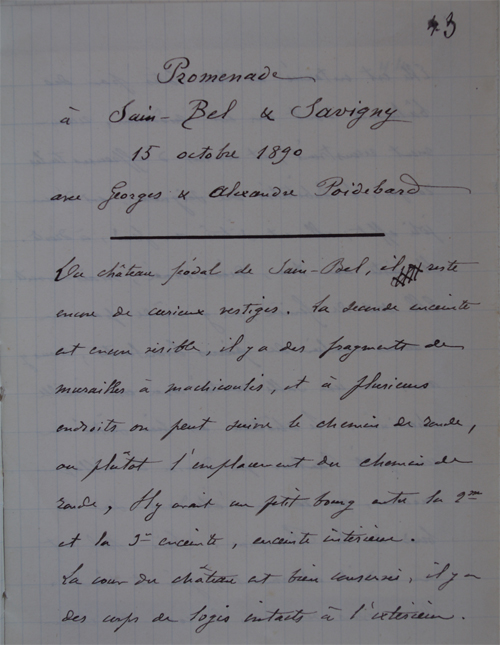 43
Promenade
à Sain-Bel & Savigny
15 octobre 1890
avec Georges & Alexandre Poidebard
Du château féodal de Sain-Bel, il reste
encore de curieux vestiges. La seconde enceinte
est encore visible, il y a des fragments de
murailles à machicoulis, et à plusieurs
endroits on peut suivre le chemin de ronde,
ou plûtôt l'emplacement du chemin de
ronde, Il y avait un petit bourg entre la 2me
et la 3e enceinte, enceinte intérieure.
La cour du château est bien conservée, il y a
des corps de logis intacts à l'extérieur.